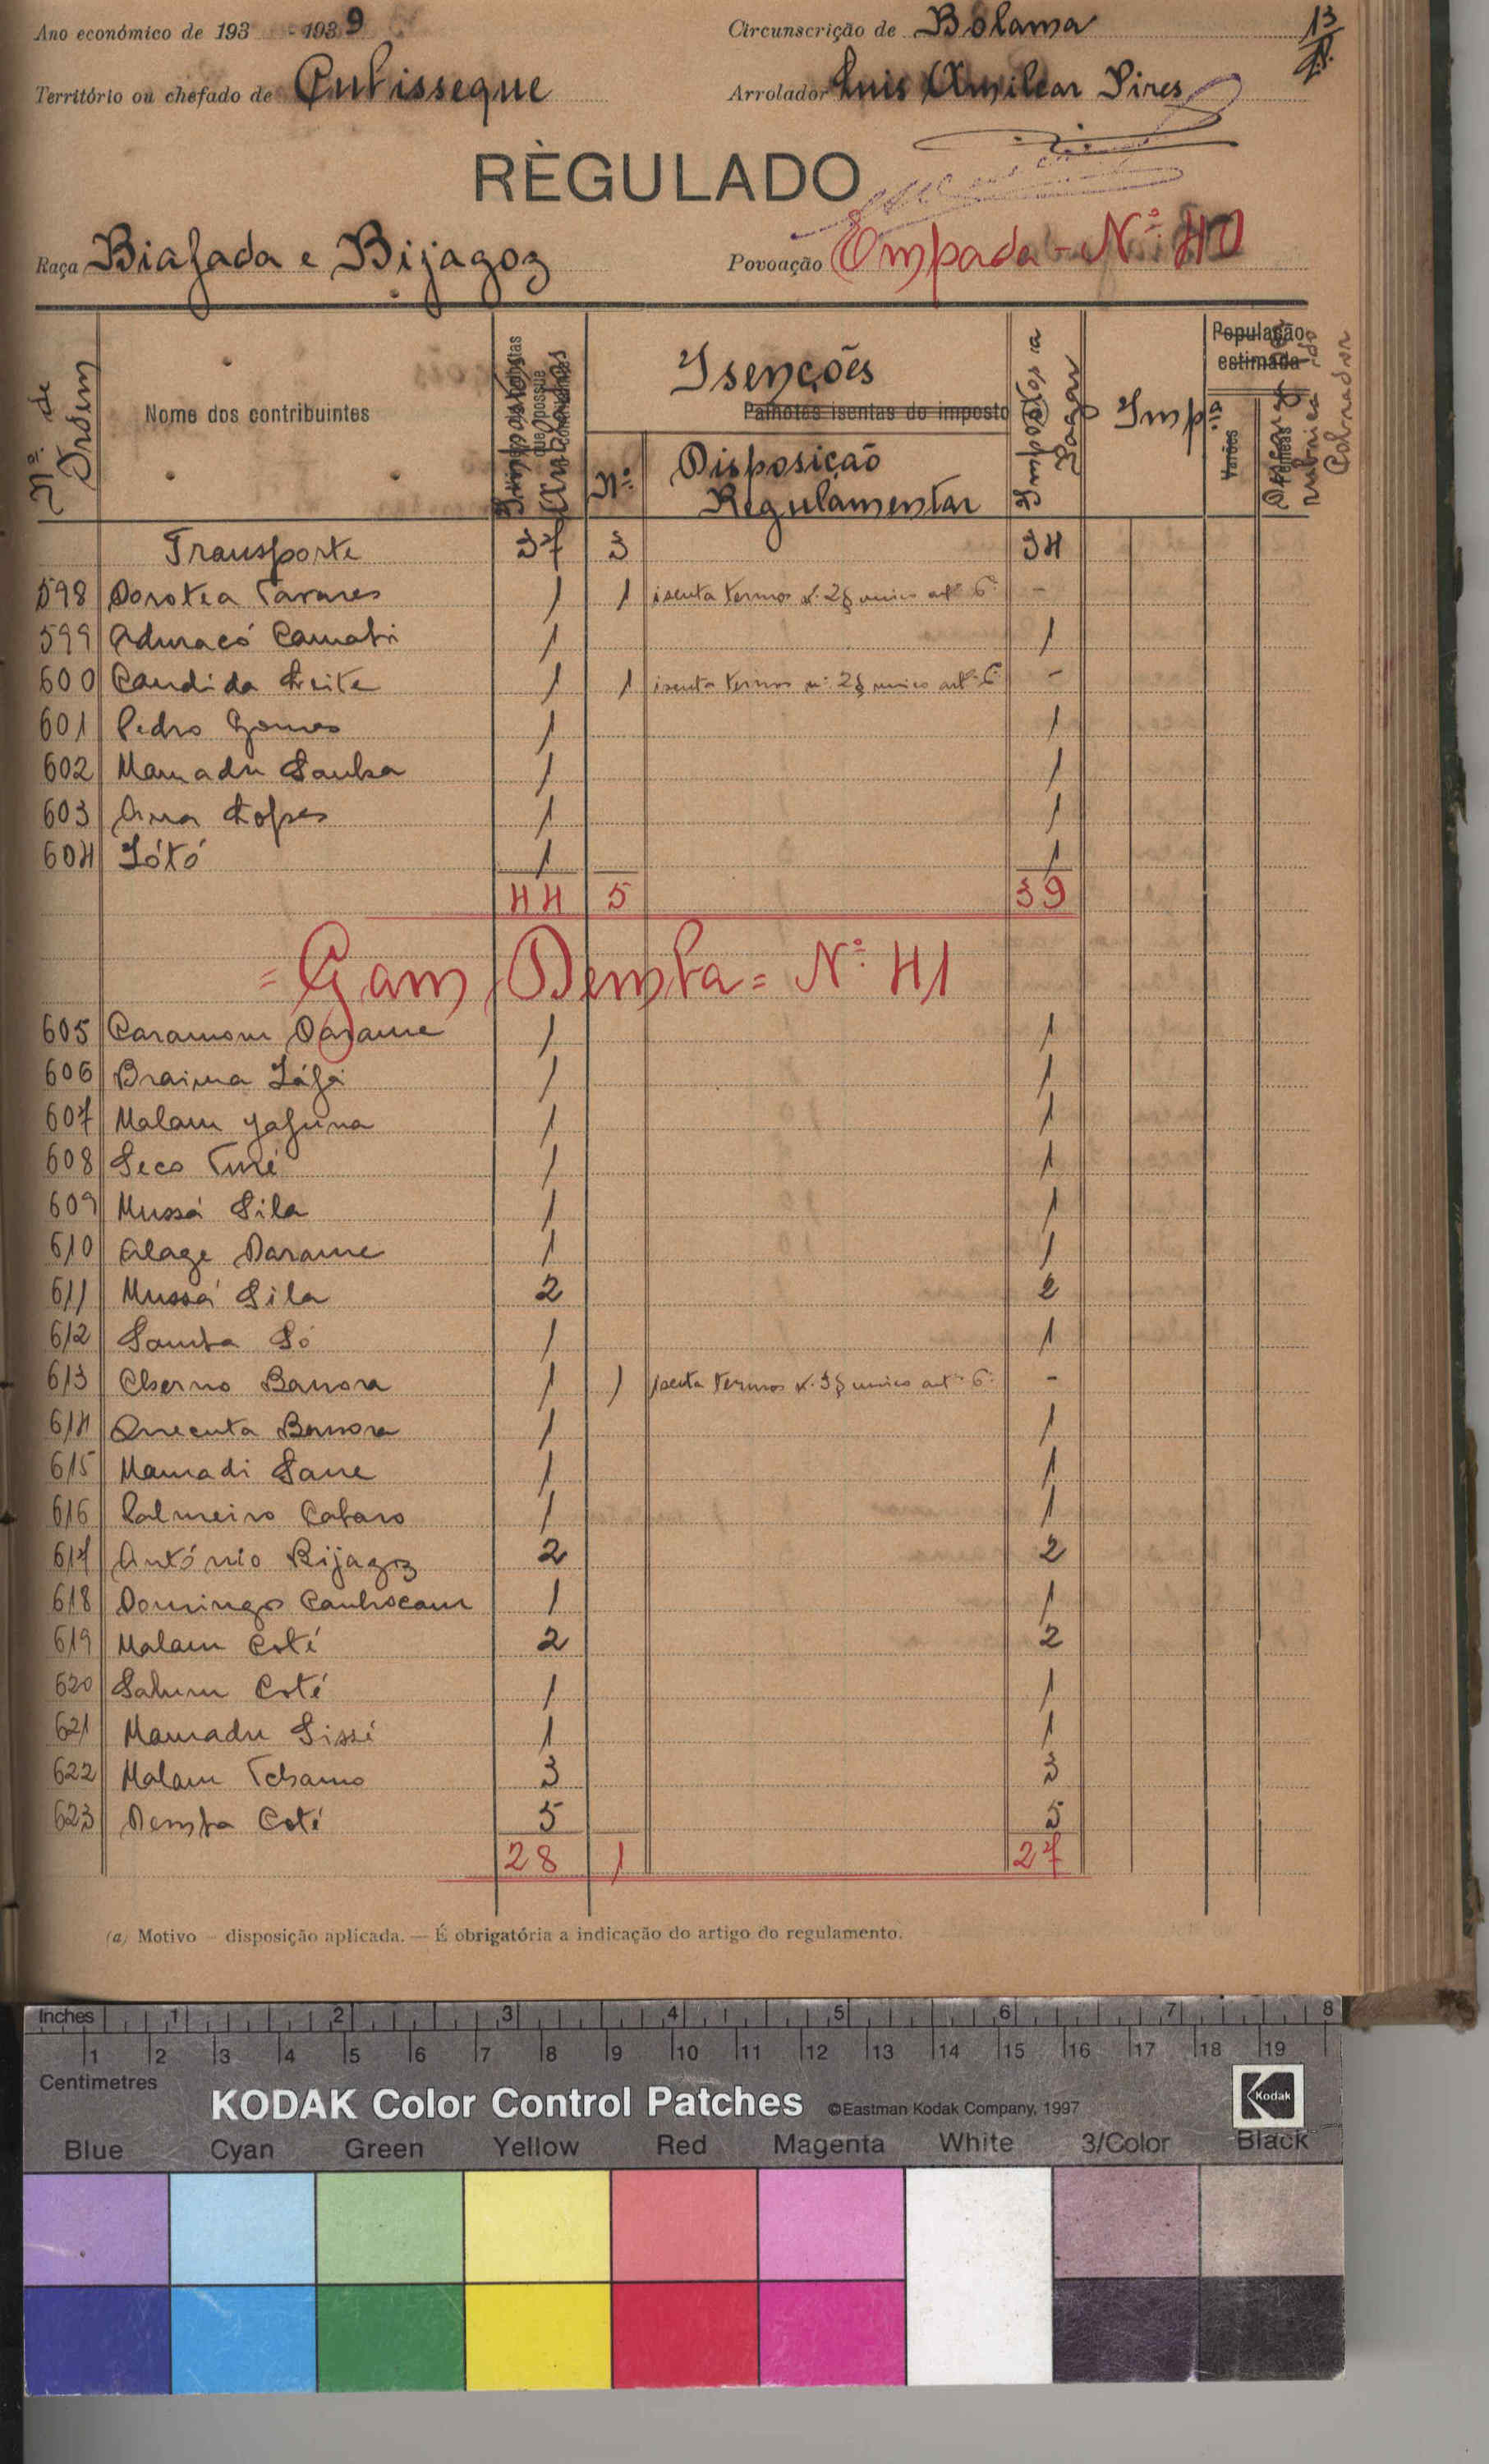 Ano económico de 193 -1939
Circunscrição de Bolama
13
Território ou chefado de Cubisseque
Arrolador Luis Amilcar Pires
RÈGULADO
Raça Biafada e Bijagoz
Povoação Empada - Nº 40
Nº de Ordem
Nome dos contribuintes
Impostos
Isenções
Palhotas isentas do imposto
Nº
Disposição
Regulamentar
Impostos a Pagar
Impª
População estimada
Varões
Fêmeas
rubrica do Cobrador
Transporte 37 3 34
598 Dorotea Tavares 1 1 isenta termos nº 2 § unico artº 6º -
599 Aduracó Camabi 1 1
600 Candida Leite 1 1 isenta termos nº 2 § unico artº 6º -
601 Pedro Gomes 1 1
602 Mamadu Sanha 1 1
603 Ana Lopes 1 1
604 Iótó 1 1
44 5 39
= Gam Demba = Nº 41
605 Caramom Darame 1 1
606 Braima Jáfó 1 1
607 Malam Jafuna 1 1
608 Seco Turé 1 1
609 Mussá Sila 1 1
610 Alage Darame 1 1
611 Mussá Sila 2 2
612 Samba Só 1 1
613 Cherno Banora 1 1 isenta termos nº 3 § unico artº 6º -
614 Quecuta Banora 1 1
615 Mamadi Sane 1 1
616 Palmeiro Cabaro 1 1
617 António Bijagoz 2 2
618 Domingos 1 1
619 Malam Coté 2 2
620 Salum Coté 1 1
621 Mamadu Sissé 1 1
622 Malam Tchamo 3 3
623 Demba Coté 5 5
28 1 27
(a) Motivo - disposição aplicada. — É obrigatória a indicação do artigo do regulamento.
Inches 1 2 3 4 5 6 7 8
1 2 3 4 5 6 7 8 9 10 11 12 13 14 15 16 17 18 19
Centimetres
KODAK Color Control Patches ©Eastman Kodak Company, 1997 Kodak
Blue Cyan Green Yellow Red Magenta White 3/Color Black